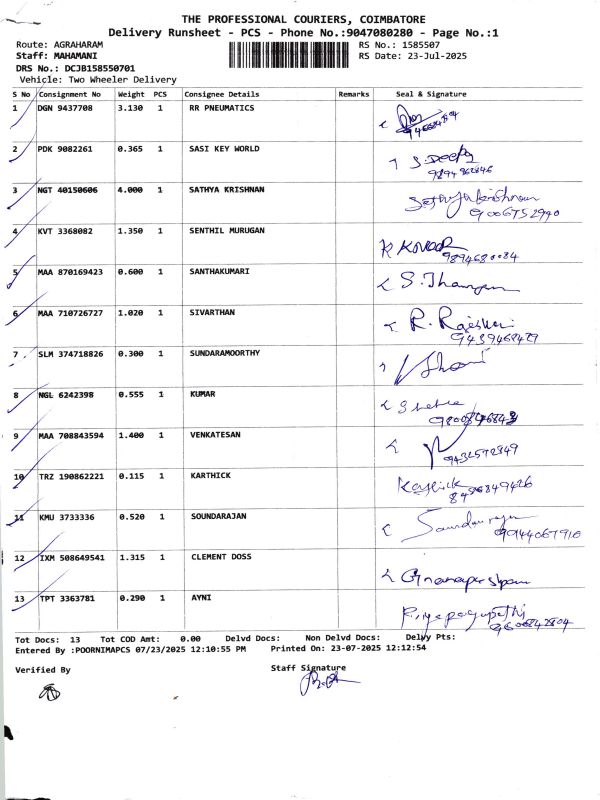 THE PROFESSIONAL COURIERS, COIMBATORE
Delivery Runsheet - PCS - Phone No.:9047080280 - Page No.:1
Route: AGRAHARAM RS No.: 1585507
Staff: MAHAMANI RS Date: 23-Jul-2025
DRS No.: DCJB158550701
Vehicle: Two Wheeler Delivery
S No Consignment No Weight PCS Consignee Details Remarks Seal & Signature
1 DGN 9437708 3.130 1 RR PNEUMATICS
2 PDK 9082261 0.365 1 SASI KEY WORLD S.Deepa
9894862846
3 NGT 40150606 4.000 1 SATHYA KRISHNAN Sathyakrishnan
9006752990
4 KVT 3368082 1.350 1 SENTHIL MURUGAN
9894680084
5 MAA 870169423 0.600 1 SANTHAKUMARI
6 MAA 710726727 1.020 1 SIVARTHAN
7 SLM 374718826 0.300 1 SUNDARAMOORTHY
8 NGL 6242398 0.555 1 KUMAR
9 MAA 708843594 1.400 1 VENKATESAN
9432572849
10 TRZ 190862221 0.115 1 KARTHICK Karthick
8436849426
11 KMU 3733336 0.520 1 SOUNDARAJAN Soundarajan
9944067910
12 IXM 508649541 1.315 1 CLEMENT DOSS
13 TPT 3363781 0.290 1 AYNI
Tot Docs: 13 Tot COD Amt: 0.00 Delvd Docs: Non Delvd Docs: Delvy Pts:
Entered By :POORNIMAPCS 07/23/2025 12:10:55 PM Printed On: 23-07-2025 12:12:54
Verified By Staff Signature